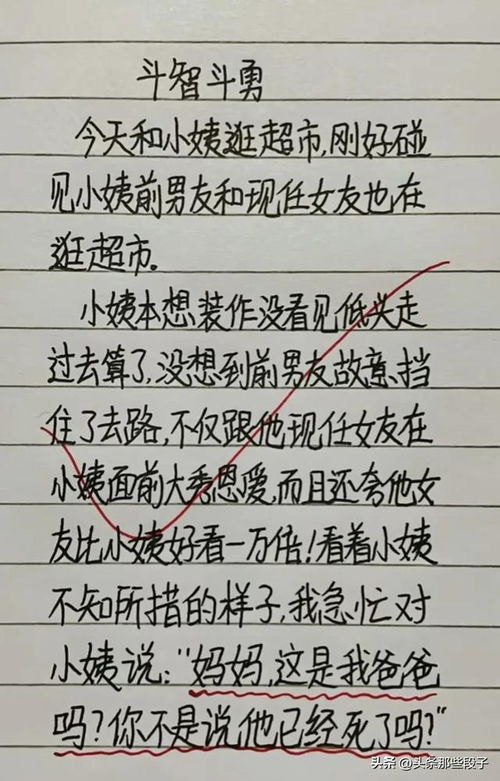 斗智斗勇
今天和小姨逛超市,刚好碰
见小姨前男友和现任女友也在
逛超市.
小姨本想装作没看见低头走
过去算了,没想到前男友故意挡
住了去路,不仅跟他现任女友在
小姨面前大秀恩爱,而且还夸他女
友比小姨好看一万倍!看着小姨
不知所措的样子,我急忙对
小姨说:"妈妈,这是我爸爸
吗?你不是说他已经死了吗?"
头条 @头条那些段子